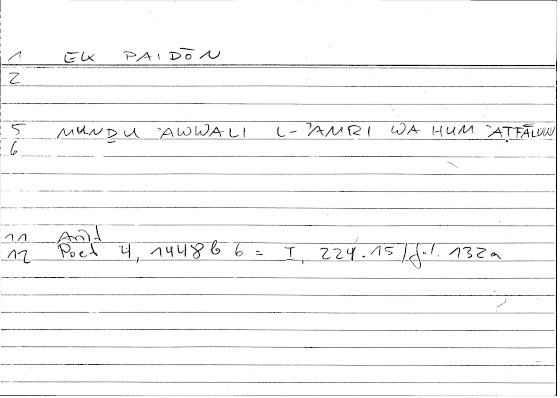 1 EK PAIDŌN
2
5 MUNḎU ʾAWWALI L-ʾAMRI WA HUM ʾAṬFĀLUN
6
11 Arist
12 Poet 4, 1448b 6 = I, 224.15/fol. 132a